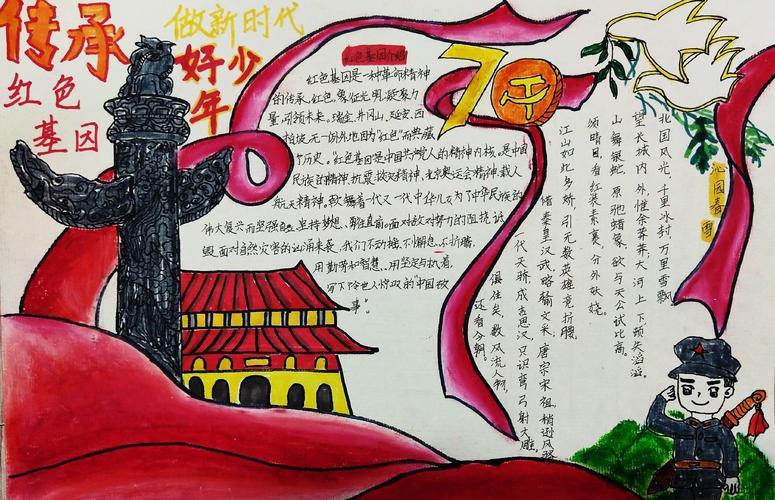 传承
红色
基因
做新时代
好少
年
红色基因介绍
红色基因是一种革命精神
的传承,红色,象征光明,凝聚力
量,引领未来。瑞金,井冈山,延安,西
柏坡,无一例外地因为"红色"而典藏
个历史。"红色基因是中国共产党人的精神内核。是中国
民族的精神,抗震救灾精神,北京奥运会精神,载人
航天精神。鼓舞着一代又一代中华儿女为了中华民族的
伟大复兴而坚强自忍,坚持梦想、勇往直前。面对敌对势力的阻挠、诋
毁,面对自然灾害的汹涌来袭,我们不动摇、不懈怠、不折腾。
用勤劳和智慧、用坚定与执着,
写下令世人惊叹的"中国故
事"。
70
沁园春 雪
北国风光,千里冰封,万里雪飘
望长城内外,惟余莽莽;大河上下,顿失滔滔。
山舞银蛇,原驰蜡象,欲与天公试比高。
须晴日,看红装素裹,分外妖娆。
江山如此多娇,引无数英雄竞折腰。
惜秦皇汉武,略输文采,唐宗宋祖,稍逊风骚
一代天骄,成吉思汗,只识弯弓射大雕。
俱往矣,数风流人物,
还看今朝。